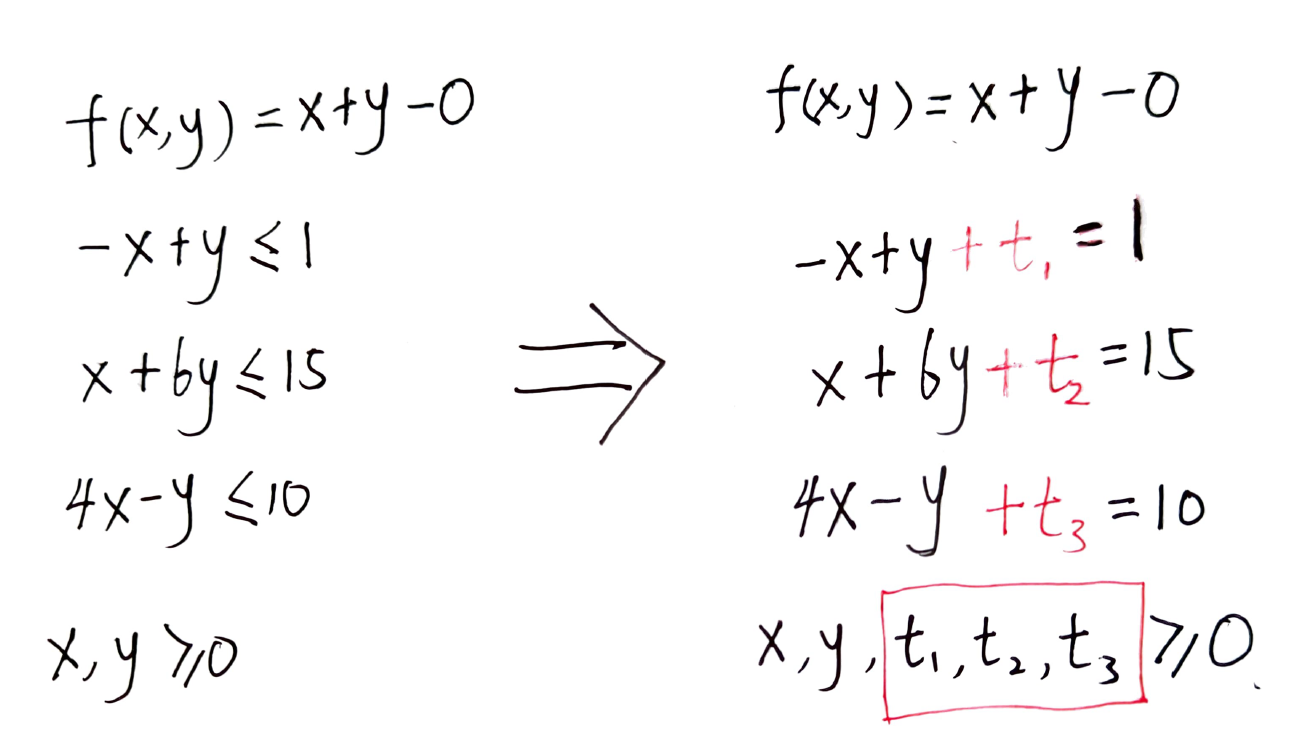 f(x,y)=x+y-0
-x+y≤1
x+6y≤15
4x-y≤10
x,y≥0
⇒
f(x,y)=x+y-0
-x+y+t₁=1
x+6y+t₂=15
4x-y+t₃=10
x,y,t₁,t₂,t₃≥0